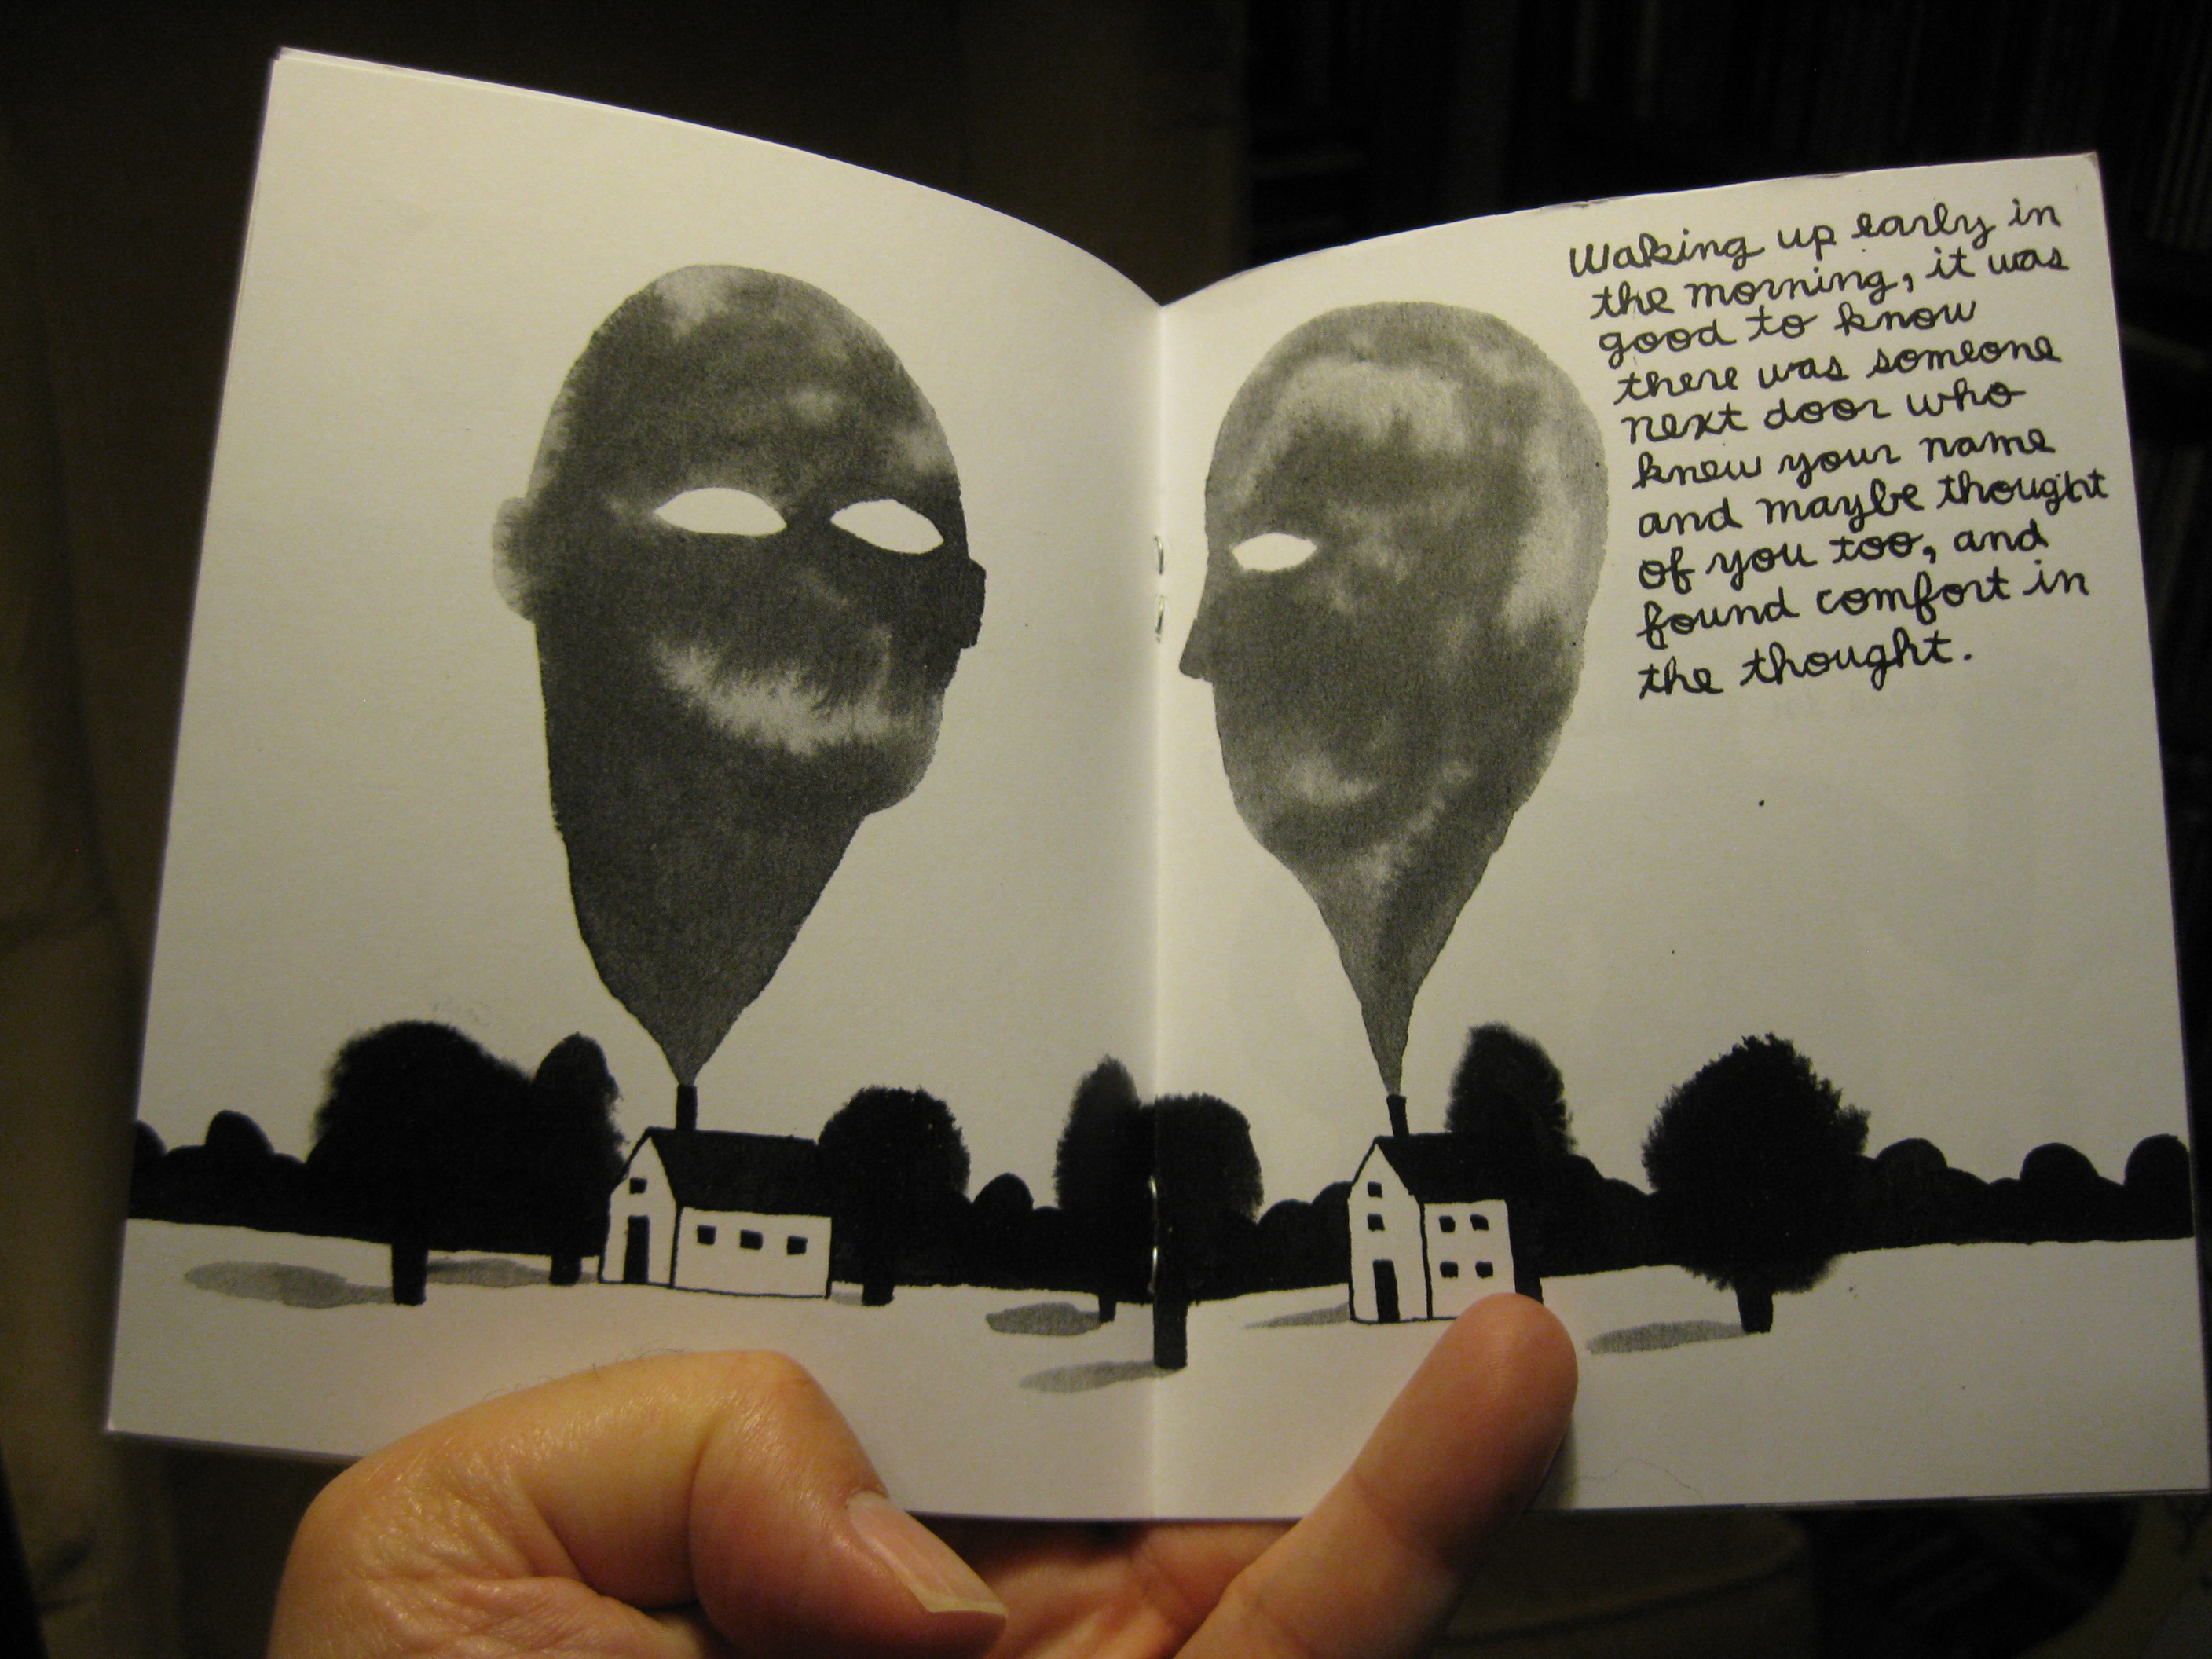 Waking up early in
the morning, it was
good to know
there was someone
next door who
knew your name
and maybe thought
of you too, and
found comfort in
the thought.